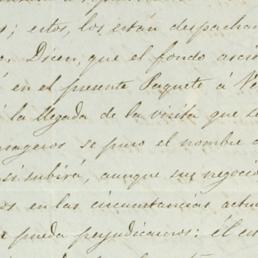 ; estos, los están despachan
Dicen, que el fondo asci
en el presente Paquete á Ve
la llegada de la visita que se
se puso el nombre
si subirá, aunque sus negocio
en las circunstancias actu
pueda perjudicarnos: él